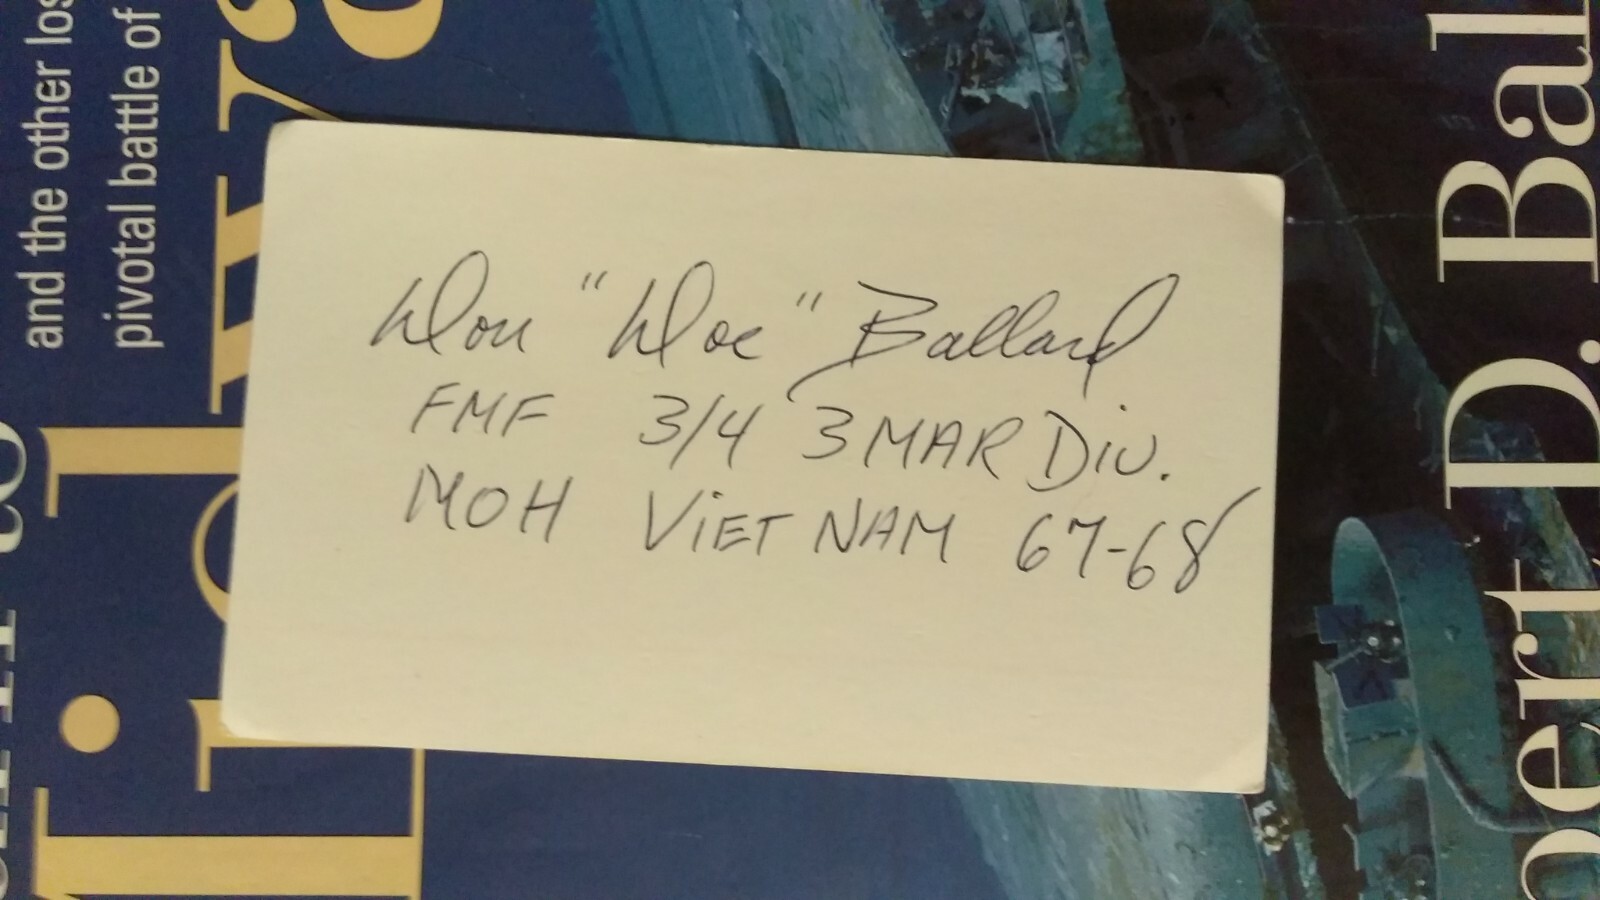 Don "Doc" Ballard
FMF 3/4 3 MAR Div.
MOH VIET NAM 67-68
and the other los
pivotal battle of
to
Midway
ert D. Bal